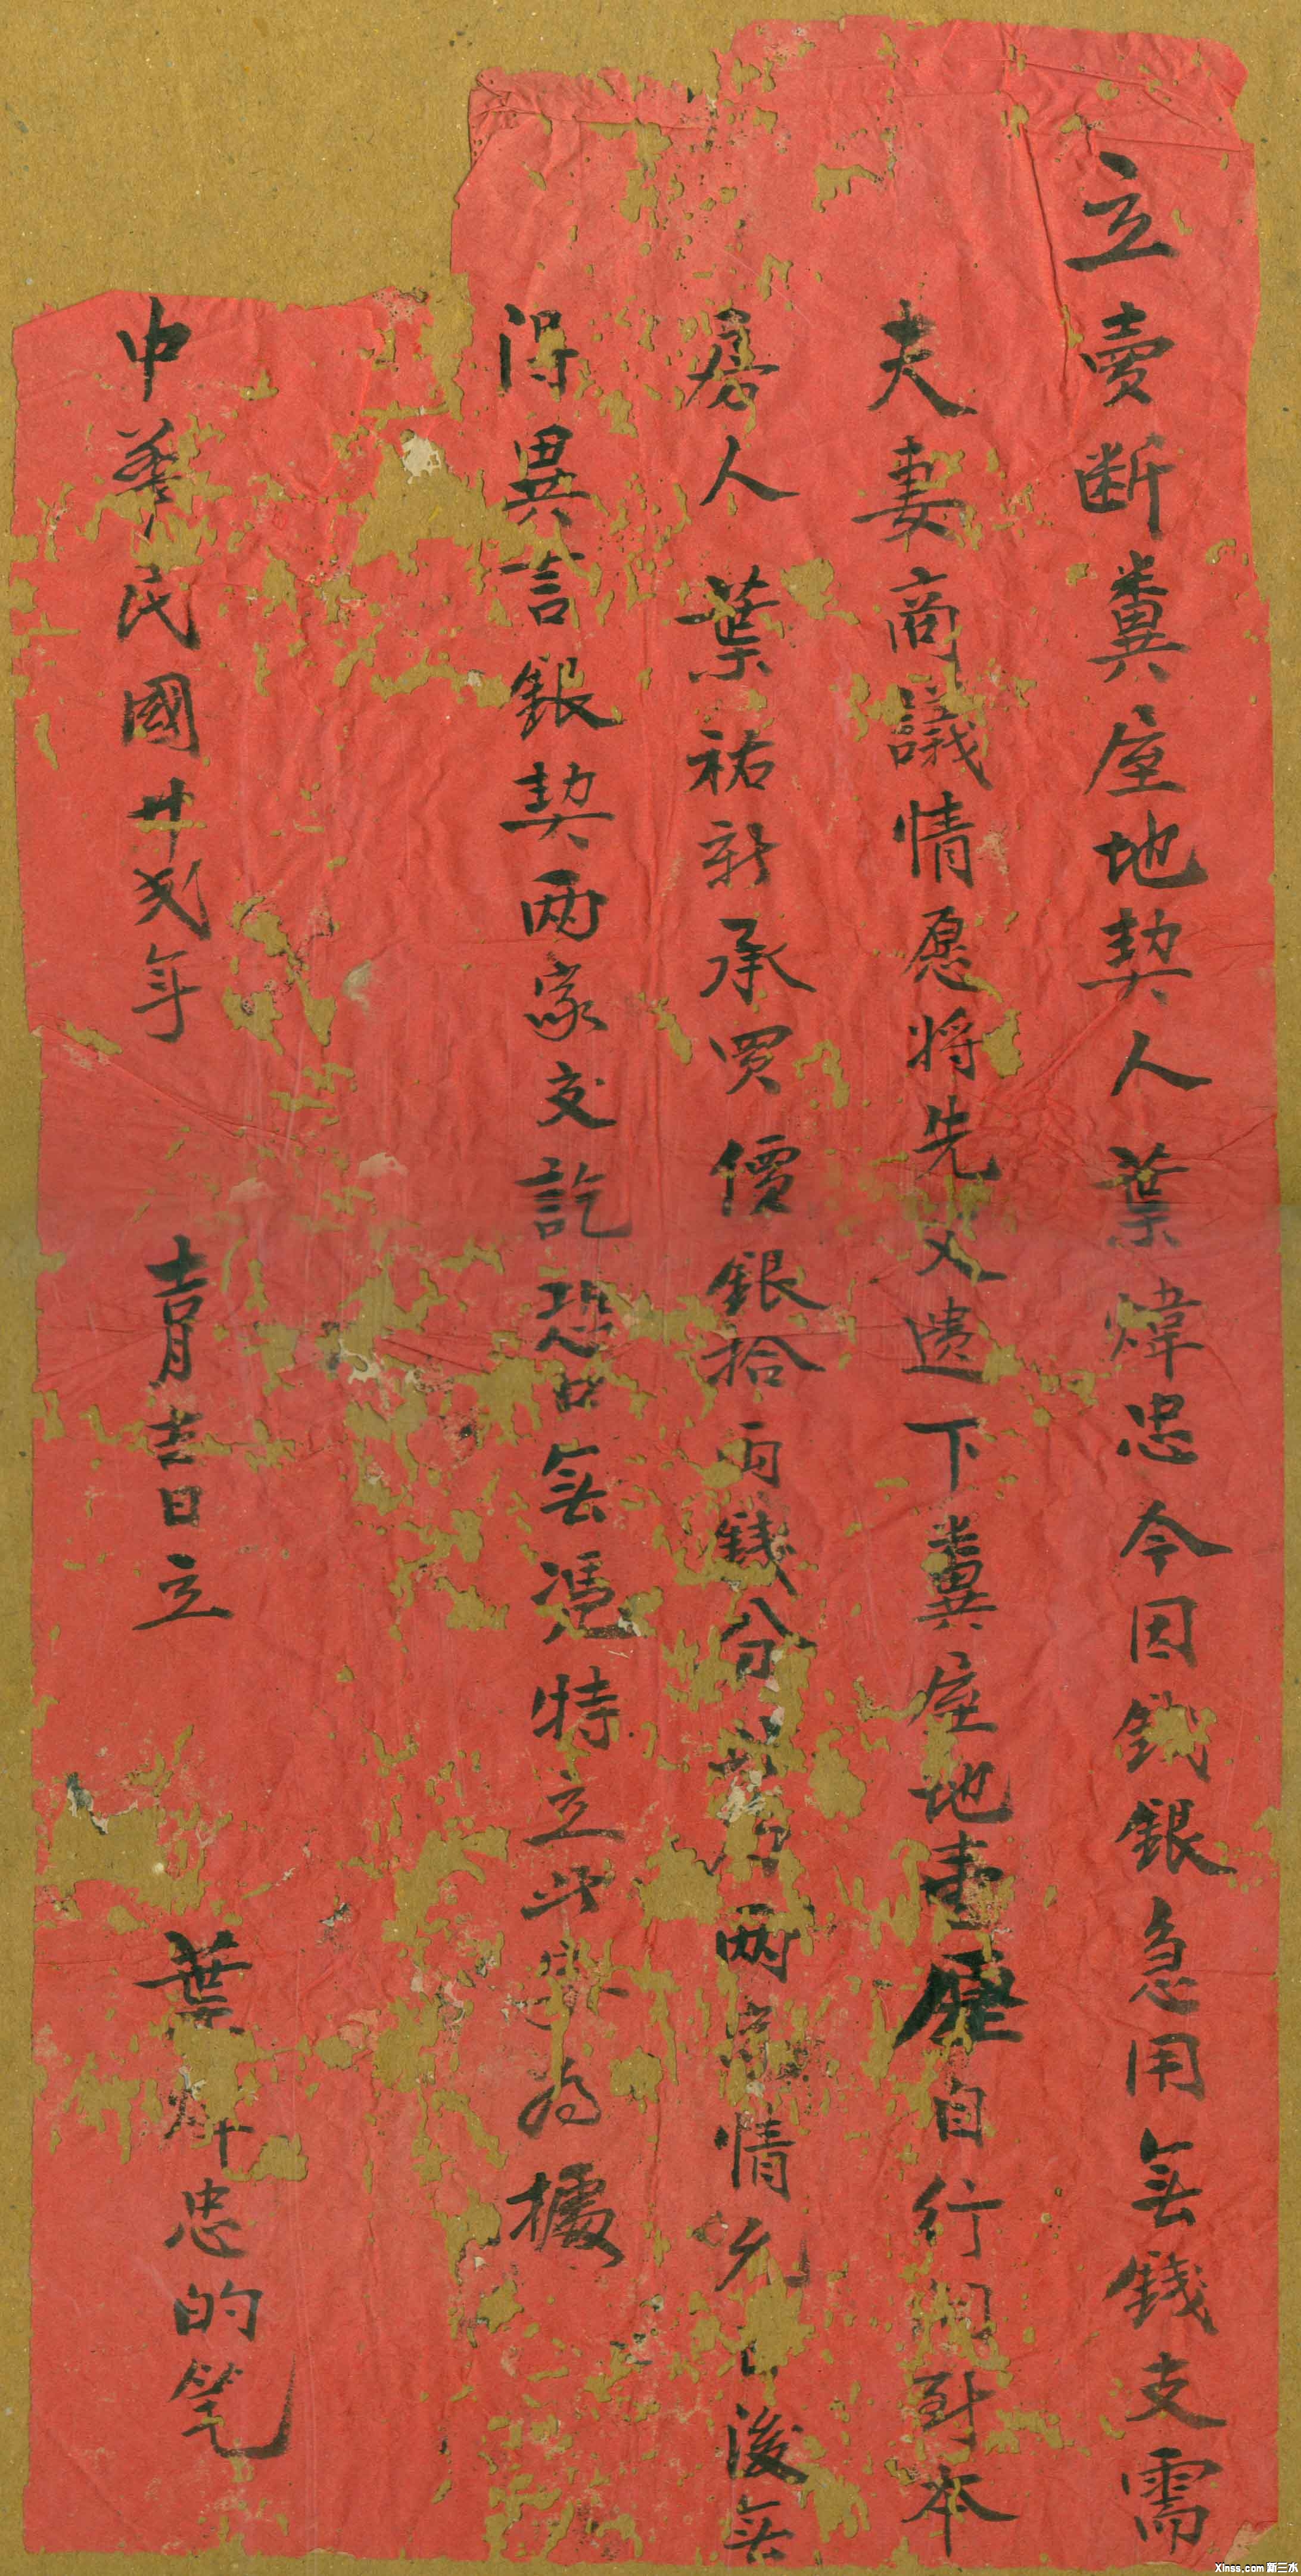 立賣断糞屋地契人葉煒忠今因錢銀急用無錢支需
夫妻商議情愿将先父遗下糞屋地壹座自行問到本
房人葉祐新承買價銀拾両錢分両情允後無
得異言銀契兩家交訖恐口無凴特立此契為據
中華民國廿弍年 十一月吉日立 葉煒忠的筆
Xinss.com 新三水